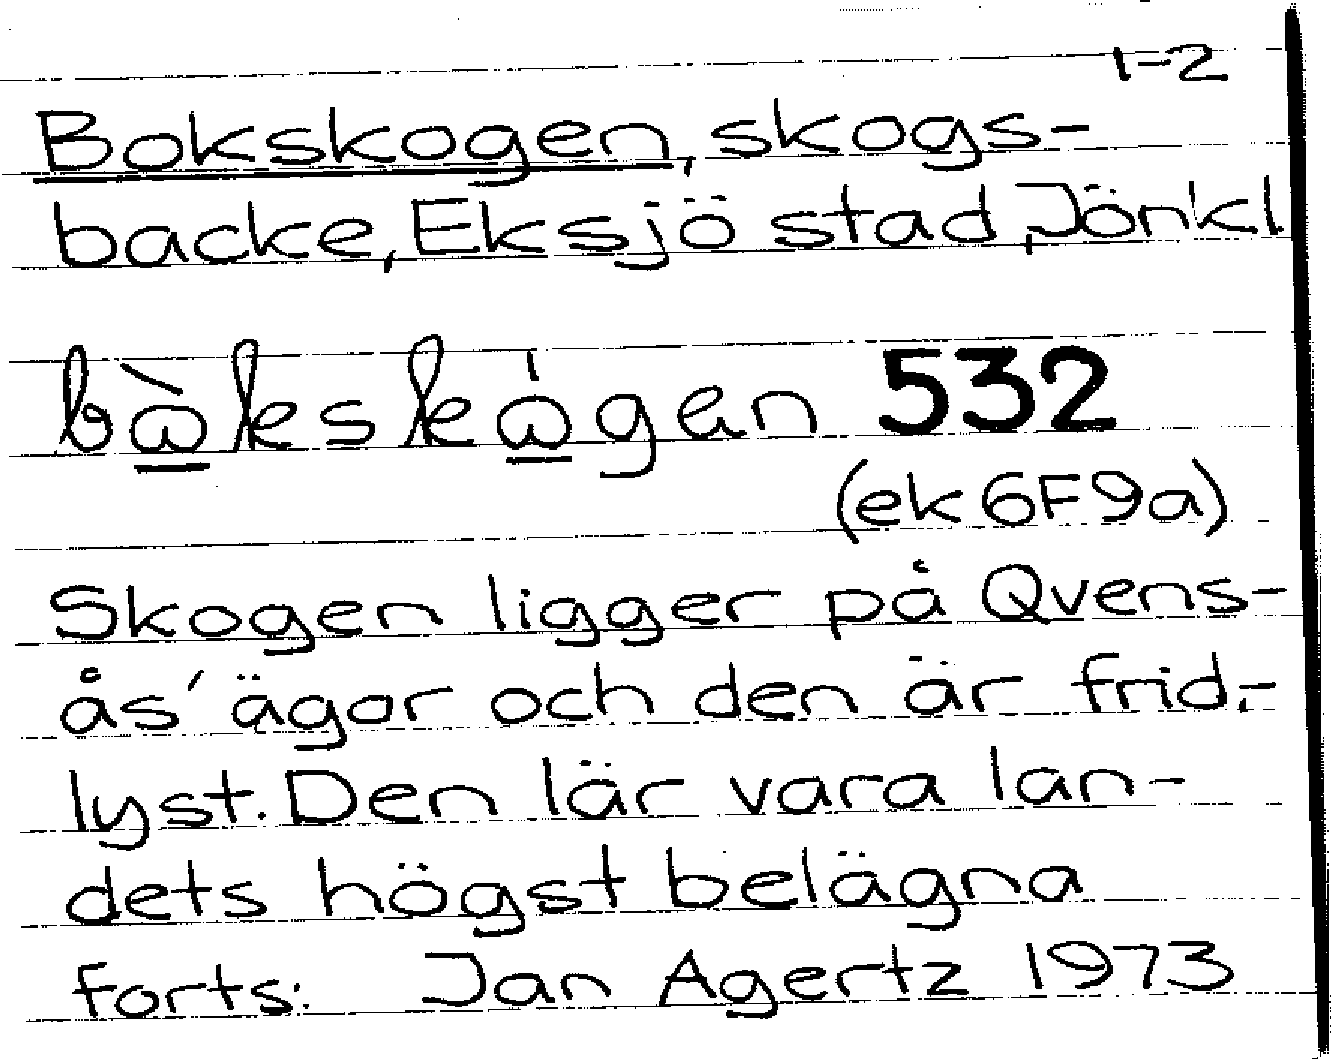 1-2
Bokskogen, skogs-
backe, Eksjö stad, Jönkl.
532
(ek 6F9a)
Skogen ligger på Qvens-
ås' ägor och den är frid-
lyst. Den lär vara lan-
dets högst belägna
forts: Jan Agertz 1973